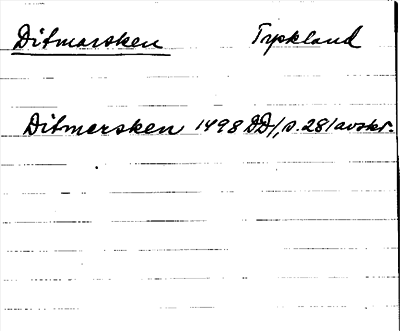 Ditmarsken Tyskland
Ditmersken 1498 DD1, s. 281 avskr.